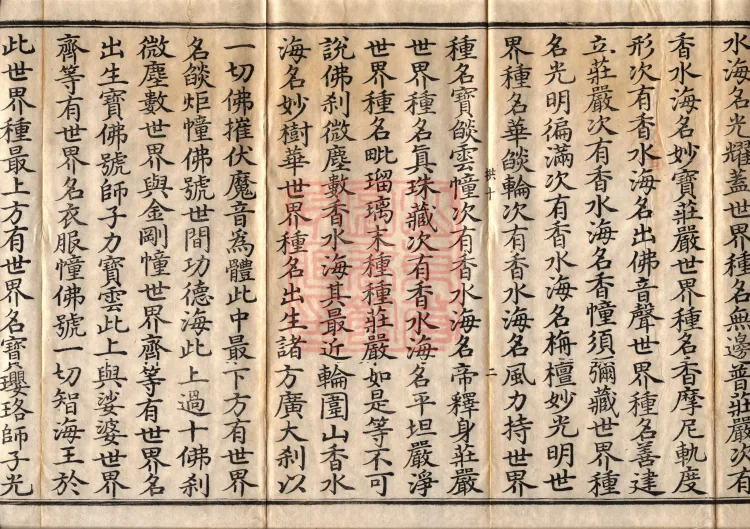 水海名光耀蓋世界種名無邊普莊嚴次有
香水海名妙寶莊嚴世界種名香摩尼軌度
形次有香水海名出佛音聲世界種名善建
立莊嚴次有香水海名香幢須彌藏世界種
名光明徧滿次有香水海名栴檀妙光明世
界種名華燄輪次有香水海名風力持世界
拱十
二
種名寶燄雲幢次有香水海名帝釋身莊嚴
世界種名眞珠藏次有香水海名平坦嚴淨
世界種名毗瑠璃末種種莊嚴如是等不可
說佛刹微塵數香水海其最近輪圍山香水
海名妙樹華世界種名出生諸方廣大刹以
一切佛摧伏魔音爲體此中最下方有世界
名燄炬幢佛號世間功德海此上過十佛刹
微塵數世界與金剛幢世界齊等有世界名
出生寶佛號師子力寶雲此上與娑婆世界
齊等有世界名衣服幢佛號一切智海王於
此世界種最上方有世界名寶瓔珞師子光